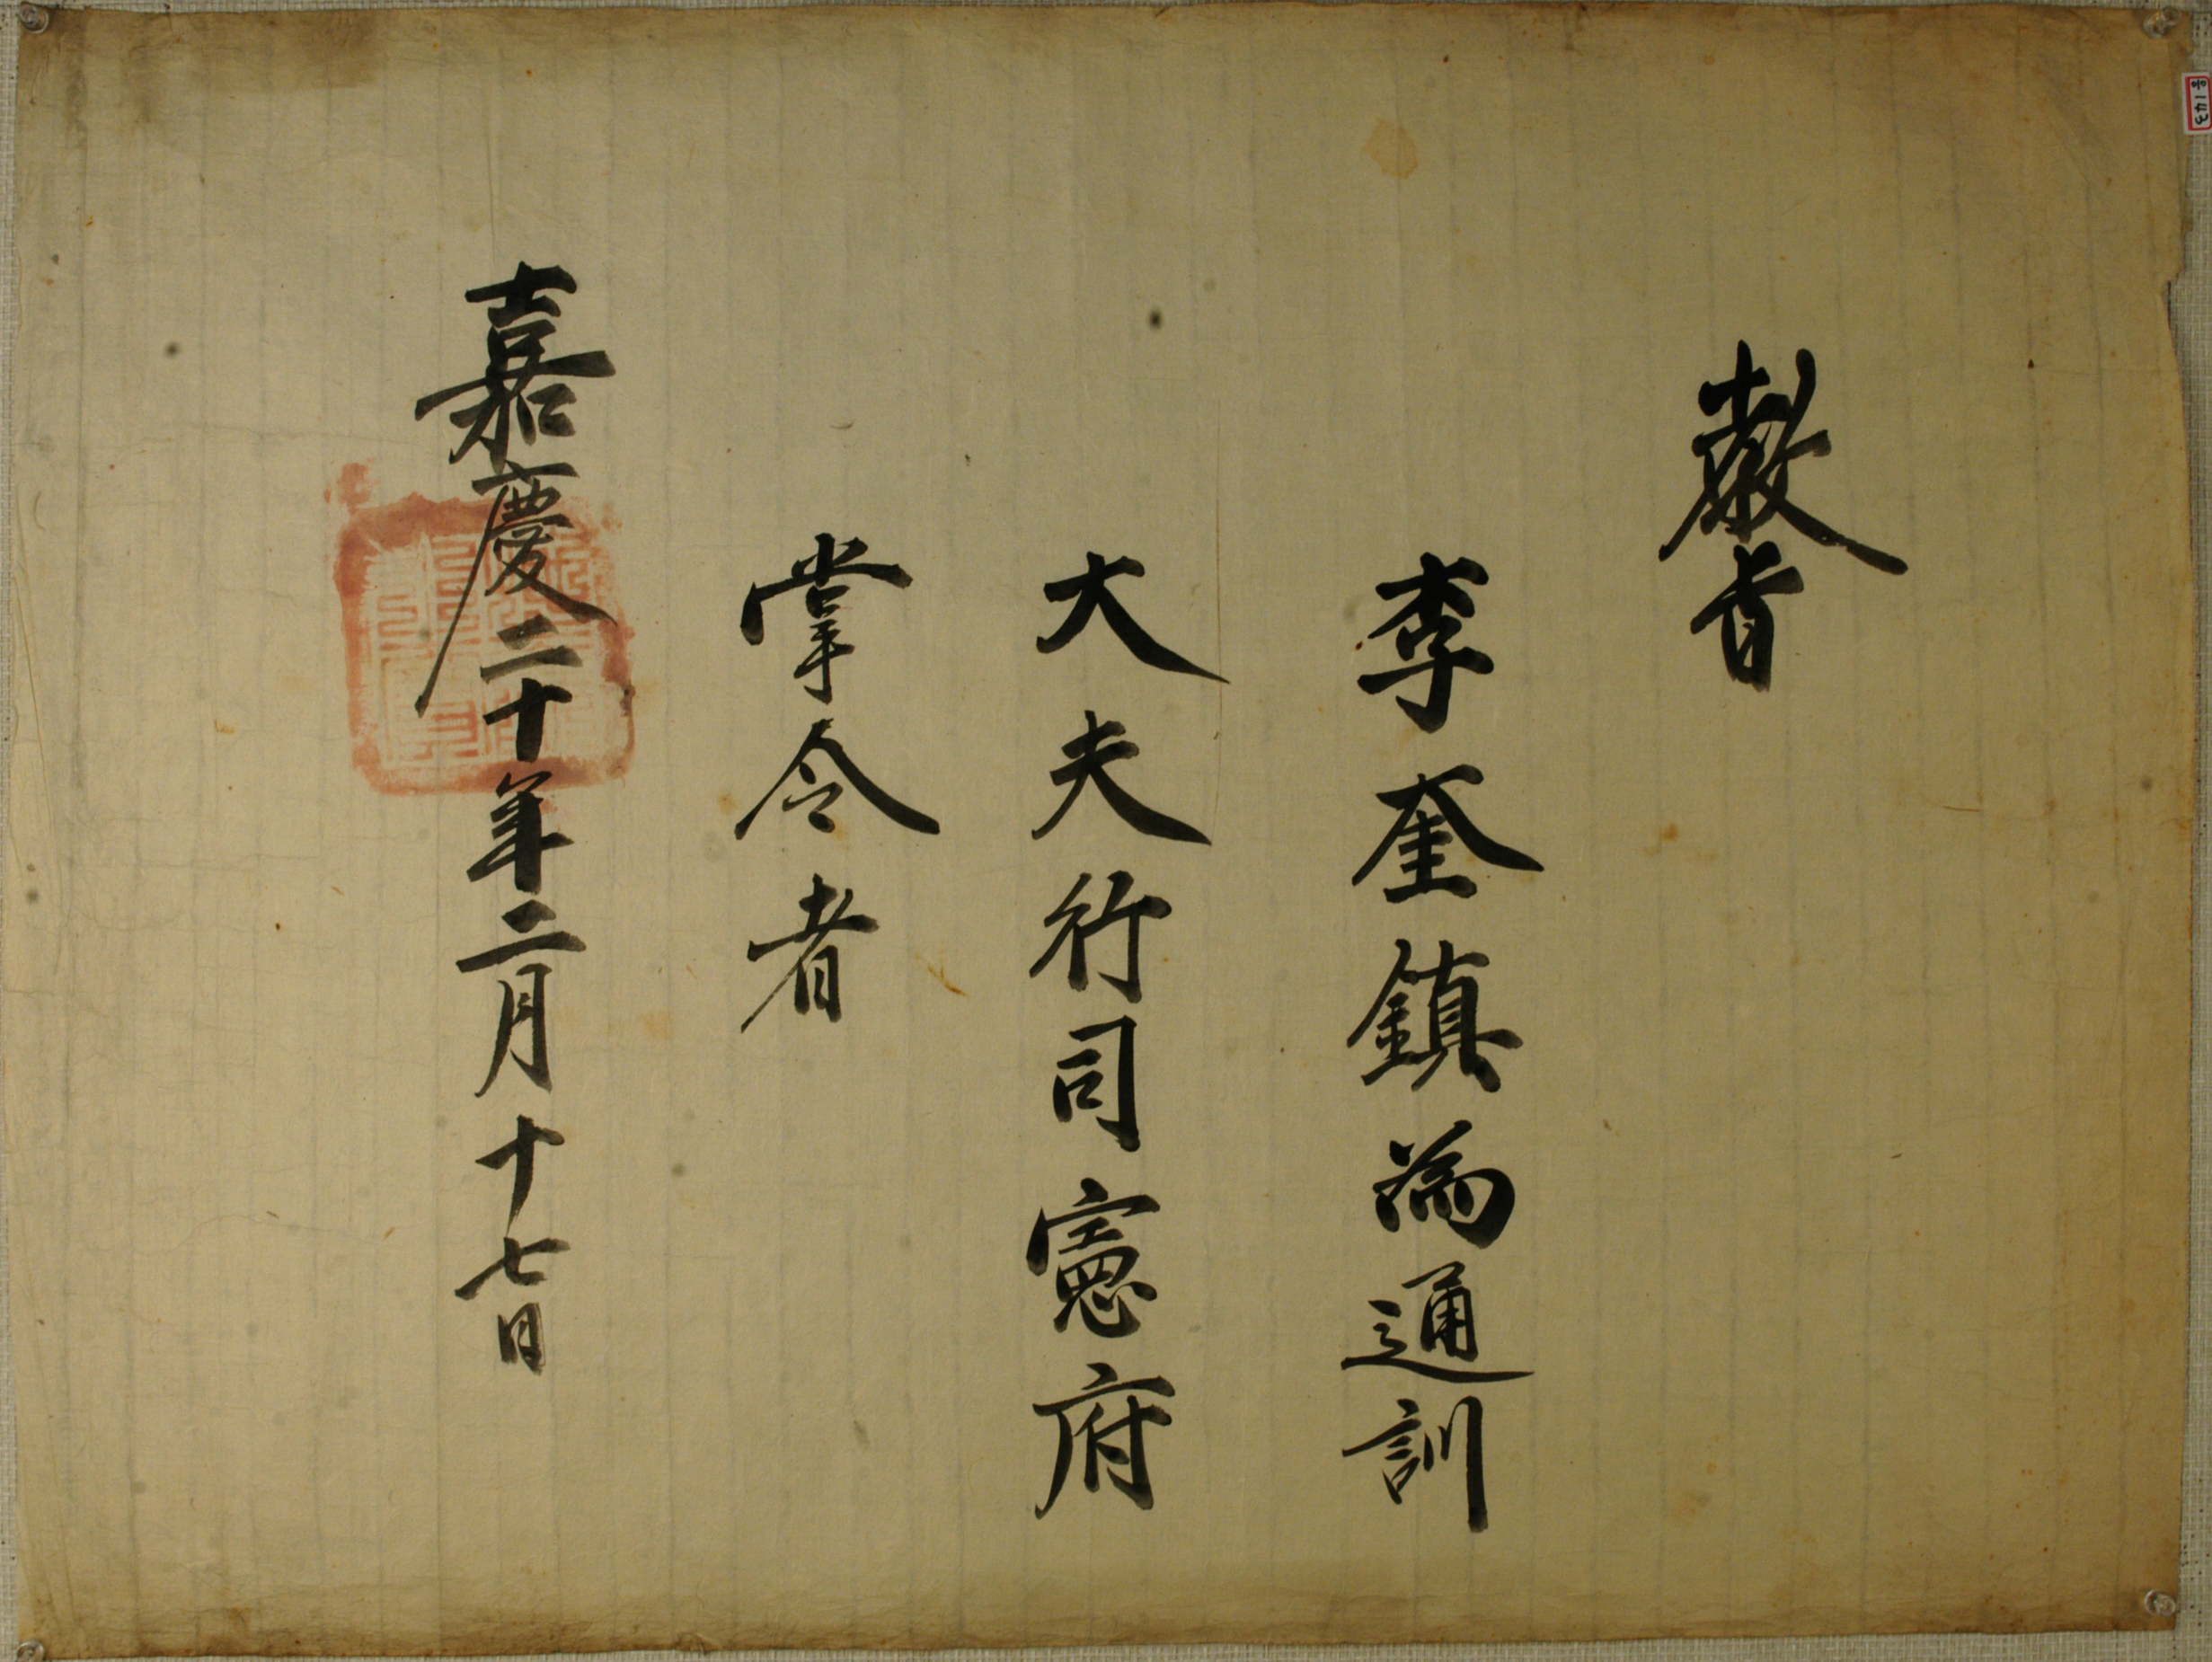 敎旨
李奎鎭爲通訓
大夫行司憲府
掌令者
嘉慶二十年二月十七日